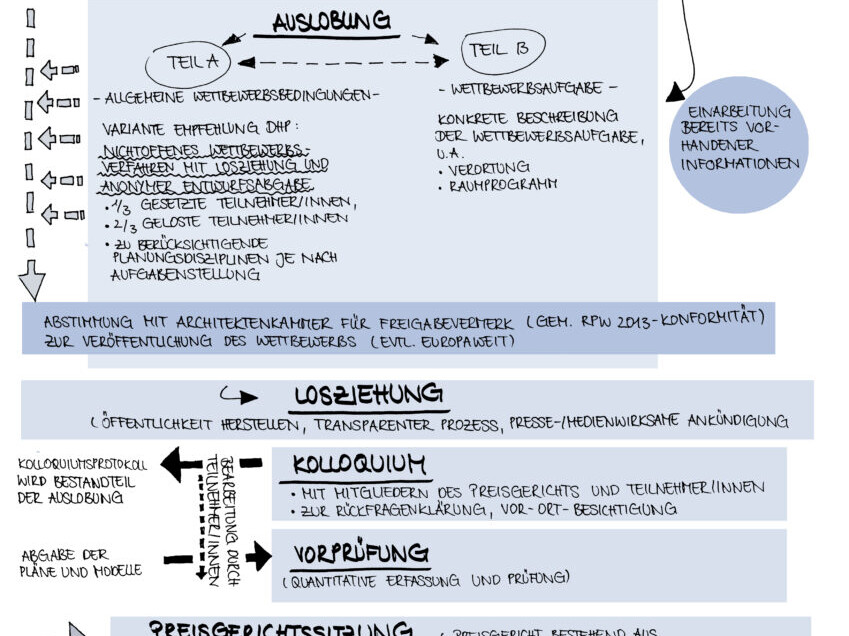 AUSLOBUNG
TEIL A
TEIL B
- ALLGEMEINE WETTBEWERBSBEDINGUNGEN -
VARIANTE EMPFEHLUNG DHP:
NICHTOFFENES WETTBEWERBS-
VERFAHREN MIT LOSZIEHUNG UND
ANONYMER ENTWURFSABGABE
• 1/3 GESETZTE TEILNEHMER/INNEN,
• 2/3 GELOSTE TEILNEHMER/INNEN
• ZU BERÜCKSICHTIGENDE
PLANUNGSDISZIPLINEN JE NACH
AUFGABENSTELLUNG
- WETTBEWERBSAUFGABE -
KONKRETE BESCHREIBUNG
DER WETTBEWERBSAUFGABE,
U.A.
• VERORTUNG
• RAUMPROGRAMM
EINARBEITUNG
BEREITS VOR-
HANDENER
INFORMATIONEN
ABSTIMMUNG MIT ARCHITEKTENKAMMER FÜR FREIGABEVERMERK (GEM. RPW 2013-KONFORMITÄT)
ZUR VERÖFFENTLICHUNG DES WETTBEWERBS (EVTL. EUROPAWEIT)
LOSZIEHUNG
(ÖFFENTLICHKEIT HERSTELLEN, TRANSPARENTER PROZESS, PRESSE-/MEDIENWIRKSAME ANKÜNDIGUNG
KOLLOQUIUMSPROTOKOLL
WIRD BESTANDTEIL
DER AUSLOBUNG
BEARBEITUNG DURCH
TEILNEHMER/INNEN
KOLLOQUIUM
• MIT MITGLIEDERN DES PREISGERICHTS UND TEILNEHMER/INNEN
• ZUR RÜCKFRAGENKLÄRUNG, VOR-ORT-BESICHTIGUNG
ABGABE DER
PLÄNE UND MODELLE
VORPRÜFUNG
(QUANTITATIVE ERFASSUNG UND PRÜFUNG)
PREISGERICHTSSITZUNG
(PREISGERICHT BESTEHEND AUS